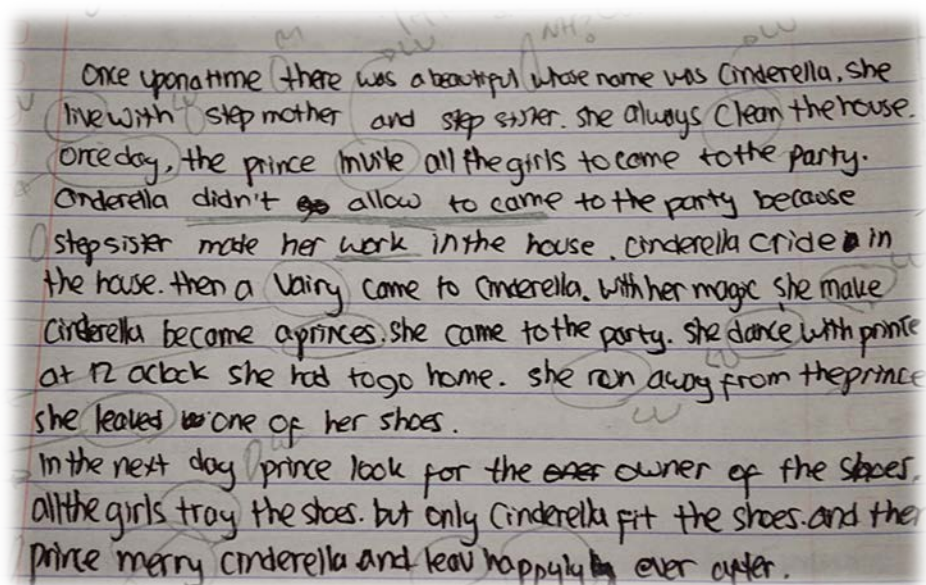 Once upon a time there was a beautiful whose name was Cinderella. she
live with step mother and step sister. she always clean the house.
once day, the prince invite all the girls to come to the party.
Cinderella didn't allow to came to the party because
stepsister made her work in the house. Cinderella cride in
the house. then a Vairy came to Cinderella. with her magic she make
Cinderella become a princes. she came to the party. she dance with prince
at 12 aclock she had to go home. she ran away from the prince
she leaved one of her shoes.
In the next day prince look for the owner of the shoes.
all the girls tray the shoes. but only Cinderella fit the shoes. and then
prince merry cinderella and leav happyly ever after.